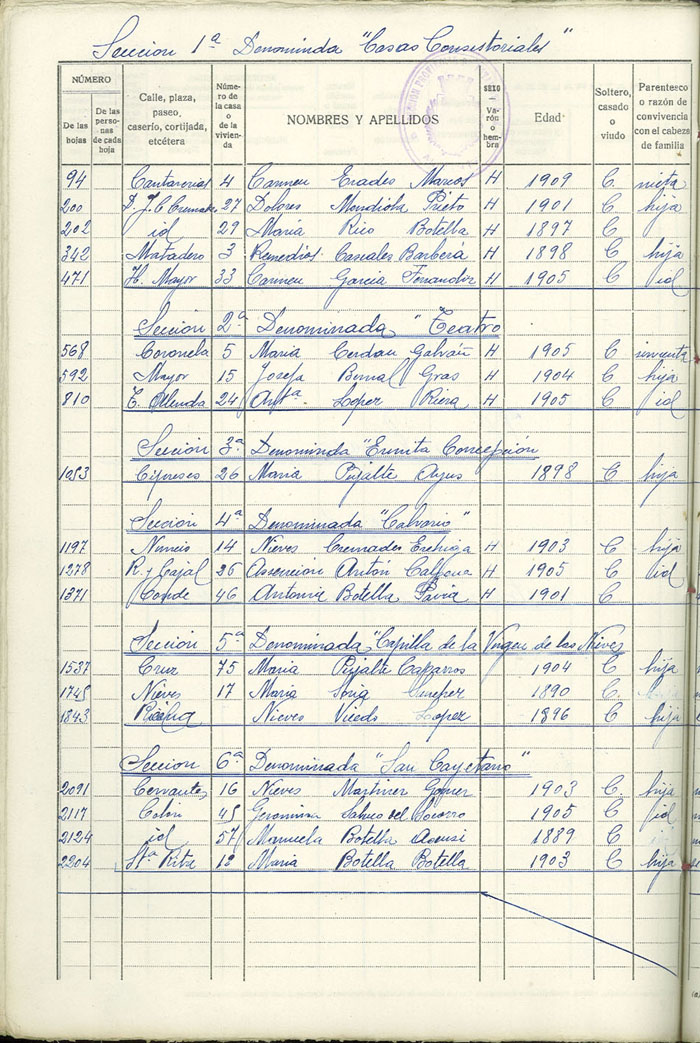 Sección 1ª Denominda "Casas Consistoriales"
NÚMERO
De las hojas
De las personas de cada hoja
Calle, plaza, paseo, caserío, cortijada, etcétera
Número de la casa o de la vivienda
NOMBRES Y APELLIDOS
SEXO — Varón o hembra
Edad
Soltero, casado o viudo
Parentesco o razón de convivencia con el cabeza de familia
94 4 Carmen Marcos H 1909 C. nieta
200 27 Dolores Prieto H 1901 C hija
202 id 29 Maria Rico Botella H 1897 C
342 Matadero 3 Remedios Cascales Barberá H 1898 C hija
471 Mayor 33 Carmen Garcia Fernandez H 1905 C id
Sección 2ª Denominada "Teatro
568 Coronela 5 Maria Cerdan Galvañ H 1905 C
592 Mayor 15 Josefa Bernal Gras H 1904 C hija
810 24 Antª Lopez Riera H 1905 C id
Sección 3ª Denominda "Ermita Concepción
1053 Cipreses 26 Maria Pujalte 1898 C hija
Sección 4ª Denominada "Calvario"
1197 14 Nieves Cremades H 1903 C hija
1278 R. y Cajal Antón H 1905 C id
1371 Conde 46 Antonia Botella Pavia H 1901 C
Sección 5ª Denominada "Capilla de la Virgen de las Nieves
1537 Cruz 75 Maria Pujalte Caparros 1904 C hija
1745 Nieves 17 Maria 1890 C.
1843 Nieves Vicedo Lopez 1896 C hija
Sección 6ª Denominada "San Cayetano"
2091 Cervantes 16 Nieves Martinez 1903 C. hija
2117 Colón 45 Geronima del Socorro 1905 C id
2124 id 57 Manuela Botella 1889 C
2204 Stª Rita 18 Maria Botella Botella 1903 C hija